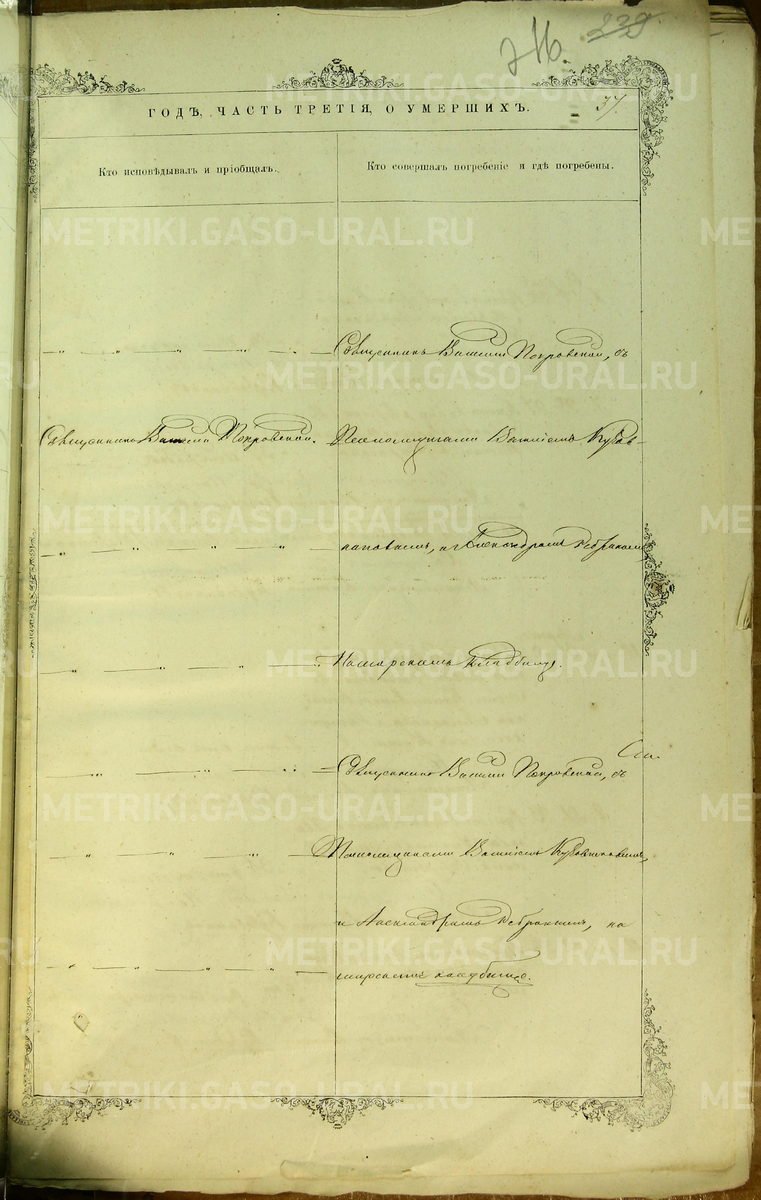 239.
ГОДѢ, ЧАСТЬ ТРЕТІЯ, О УМЕРШИХЪ.
37.
Кто исповѣдывалъ и пріобщалъ.
Кто совершалъ погребеніе и гдѣ погребены.
Священникъ Василій Покровскій, съ
Священникъ Василій Покровскій.
Псаломщиками Василіемъ
и Александромъ
кладбищѣ.
Священникъ Василій Покровскій, съ
Псаломщиками Василіемъ
и Александромъ на
кладбище.
METRIKI.GASO-URAL.RU